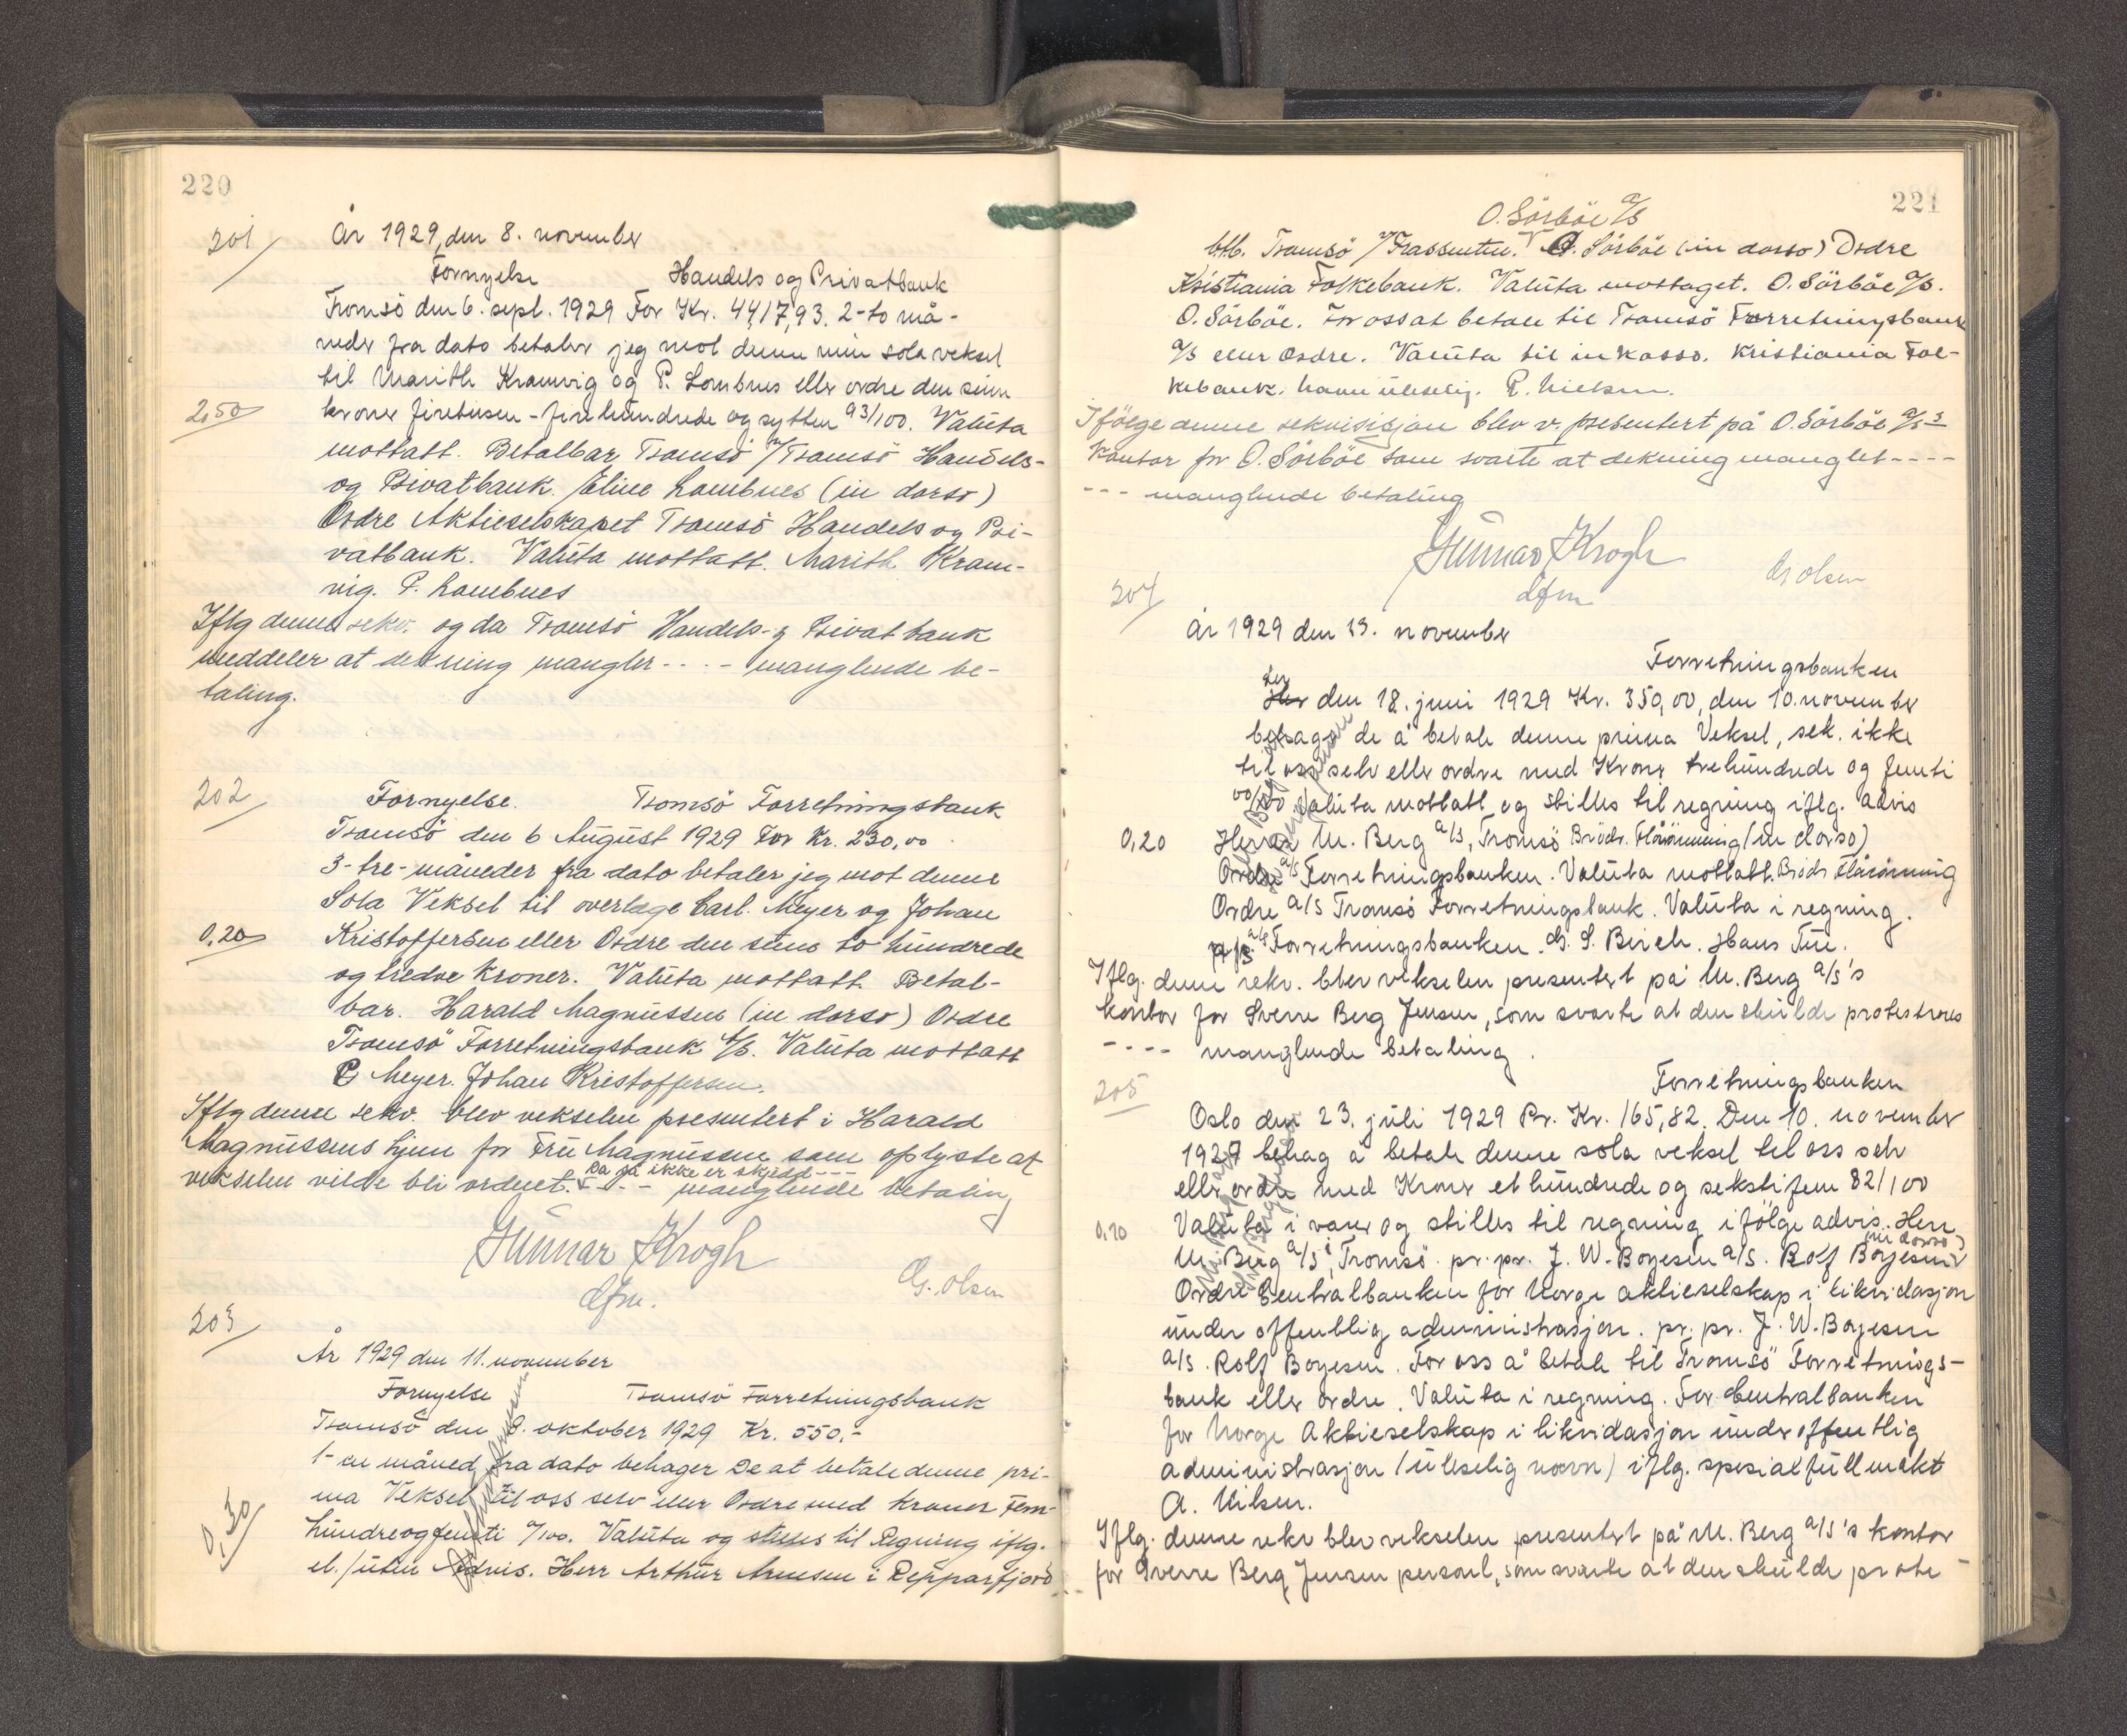 220
201/
År 1929, den 8. november
Fornyelse Handels og Privatbank
Tromsö den 6. sept. 1929 For Kr. 4417,93. 2-to må-
neder fra dato betaler jeg mot denne min sola veksel
til Marith Kramvig og P. Lombnes eller ordre den sum
2,50
kroner firetusen-firehundrede og sytten 93/100. Valuta
mottatt. Betalbar Tromsö i/Tromsö Handels-
og Privatbank. Eline Lombnes (in dorso)
Ordre Aktieselskapet Tromsö Handels og Pri-
vatbank. Valuta mottatt. Marith Kram-
vig. P. Lombnes
Iflg denne rekv. og da Tromsö Handels- og Privatbank
meddeler at dekning mangler - - - - manglende be-
taling.
202/
Fornyelse. Tromsö Forretningsbank
Tromsö den 6 August 1929 For Kr. 230,00
3-tre-måneder fra dato betaler jeg mot denne
Sola Veksel til overlæge Carl. Meyer og Johan
0,20
Kristoffersen eller Ordre den sum to hundrede
og tredve kroner. Valuta mottatt. Betal-
bar. Harald Magnussen (in dorso) Ordre
Tromsö Forretningsbank A/S. Valuta mottatt
C Meyer. Johan Kristoffersen.
Iflg denne rekv. blev vekselen presentert i Harald
Magnussens hjem for Fru Magnussen som oplyste at
da så ikke er skjedd - - -
vekselen vilde bli ordnet. - - - manglende betaling
Gunnar Krogh
dfm.
G. Olsen
203/
År 1929 den 11. november
Fornyelse Tromsö Forretningsbank
Tromsö den 9. oktober 1929 Kr. 550.-
1-en måned fra dato behager De at betale denne pri-
ma Veksel til oss selv eller Ordre med kroner Fem-
0,30
hundreogfemti 0/100. Valuta og stilles til Regning iflg.
el./uten Advis. Herr Arthur Arnesen i Repparfjord
221
O. Sörböe a/s
btb. Tromsö i/Trassenten. O. Sörböe (in dorso) Ordre
Kristiania Folkebank. Valuta mottaget. O. Sörböe a/s.
O. Sörböe. For oss at betale til Tromsö Forretningsbank
a/s eller Ordre. Valuta til inkasso. Kristiania Fol-
kebank. navn uleselig. P. Nielsen.
Ifölge denne rekvisisjon blev v. presentert på O. Sörböe a/s s
kontor for O. Sörböe som svarte at dekning manglet - - - -
- - - manglende betaling
Gunnar Krogh
dfm
G Olsen
204/
År 1929 den 13. november
Forretningsbanken
den 18. juni 1929 Kr. 350,00, den 10. november
behage de å betale denne prima Veksel, sek. ikke
til oss selv eller ordre med Kroner trehundrede og femti
00/100 Valuta mottatt og stilles til regning iflg. advis
0,20
Herrer M. Berg a/s, Tromsö Brödr. Flårönning (in dorso)
Ordre a/s Forretningsbanken. Valuta mottatt. Brödr Flårönning
Ordre a/s Tromsö Forretningsbank. Valuta i regning.
a/s Forretningsbanken. G. S. Birch. Hans Tue.
Iflg. denne rekv. blev vekselen presentert på M. Berg a/s's
kontor for Sverre Berg Jensen, som svarte at den skulde protesteres
- - - - manglende betaling.
205
Forretningsbanken
Oslo den 23. juli 1929 Pr. Kr. 165,82. Den 10. november
1929 behag å betale denne sola veksel til oss selv
eller ordre med Kroner et hundrede og sekstifem 82/100
0,20
Valuta i varer og stilles til regning ifölge advis. Herr
M. Berg a/s, Tromsö. pr. pr. J. W. Boyesen a/s. Rolf Boyesen (in dorso)
Ordre Centralbanken for Norge aktieselskap i likvidasjon
under offentlig administrasjon. pr. pr. J. W. Boyesen
a/s. Rolf Boyesen. For oss å betale til Tromsö Forretnings-
bank eller ordre. Valuta i regning. For Centralbanken
for Norge Aktieselskap i likvidasjon under offentlig
administrasjon (uleselig navn) iflg. spesialfullmakt
A. Nilsen.
Iflg. denne rekv blev vekselen presentert på M. Berg a/s's kontor
for Sverre Berg Jensen personl., som svarte at den skulde prote-